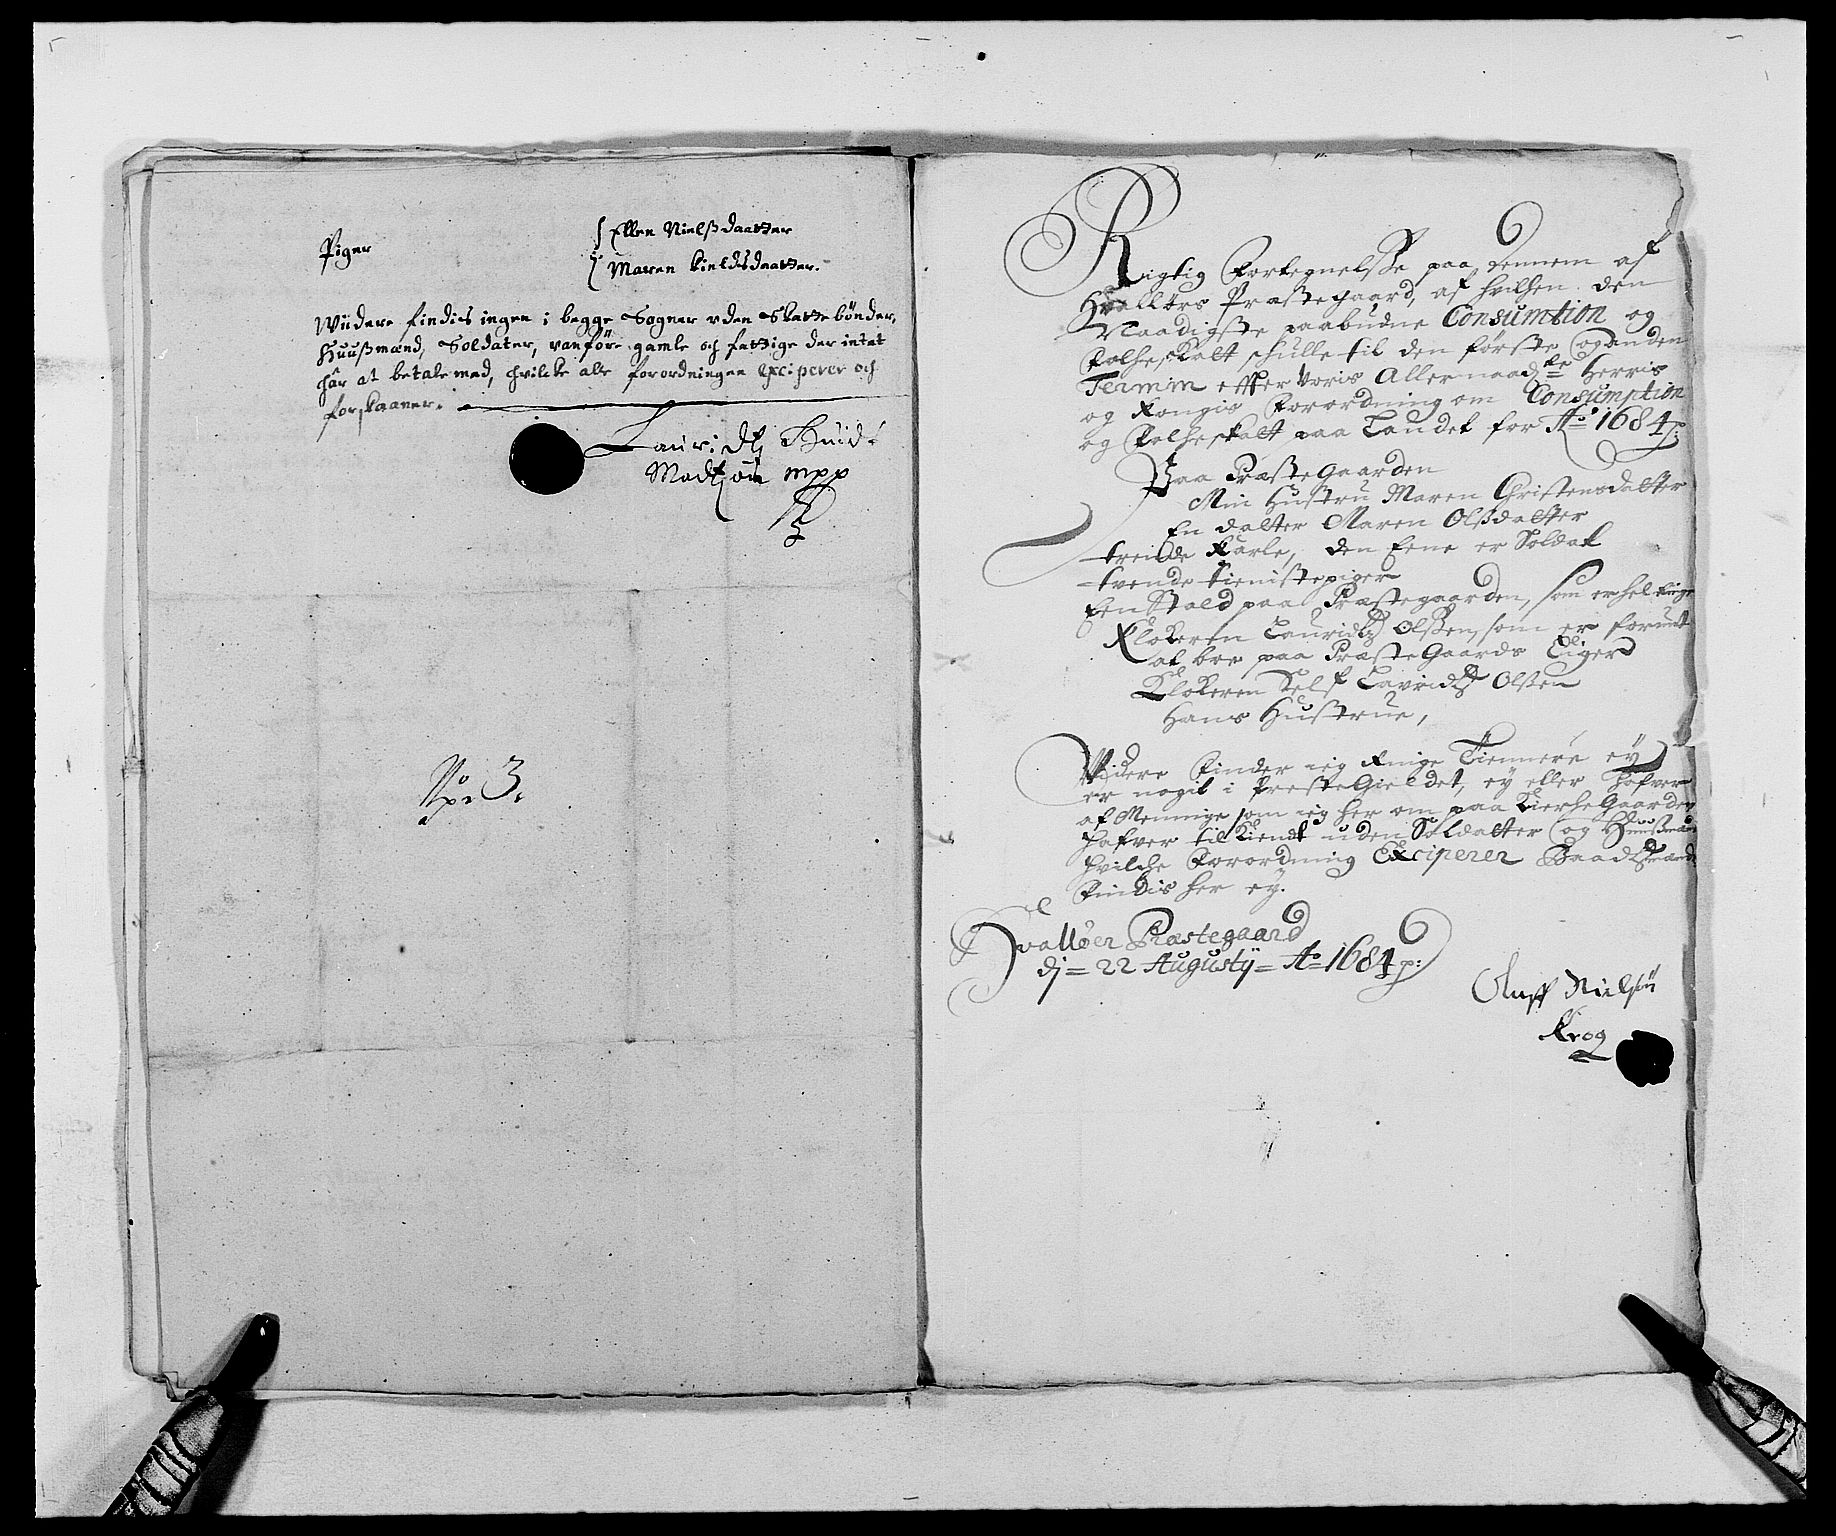 Piger
Ellen Nielsdaatter
Maren Kieldsdaatter.
Widere findis ingen i begge Sogner uden Skattebønder,
Huusmænd, Soldater, vanføre gamle och fattige der intet
har at betale med, hvilcke alle forordningen exciperer och
forskaaner.
Lauridtz
Madtzøn mpp
No 3.
Rigtig Fortegnelsse paa dennem af
Hvallørs Præstegaard, af hvilchen den
Naadigste paabudne Consumtion og
Folcheskatt schulle til den første og anden
Termin effter Voris Allernaadste Herris
og Kongis Forordning om Consumption
og Folcheskatt paa Landet for Ao 1684 p:
Paa Præstegaarden
Min Hustru Maren Christensdatter
En datter Maren Olsdatter
trende Karle, den Eene er Soldat
tvende tienistepiger
Een Stald paa Præstegaarden, som er hel ringe
Klokeren Lauridtz Olssen, som er forundt
at boe paa PræsteGaards Eiger
Klokeren Self Lauridtz Olssen
Hans Hustrue,
Videre Finder ieg Ringe Tiennere ey
er nogit i PresteGieldet, ey eller hafver
af Mennige som ieg her om paa KierkeGaarden
hafver tilkiendt uden Soldatter og Huusmænd
hvilche Forordning Exciperer Baadsmænd
Findis her ey.
Hvalløer Præstegaard
dj = 22 Augustij = Ao 1684 p:
Oluff Nielsøn
Krog